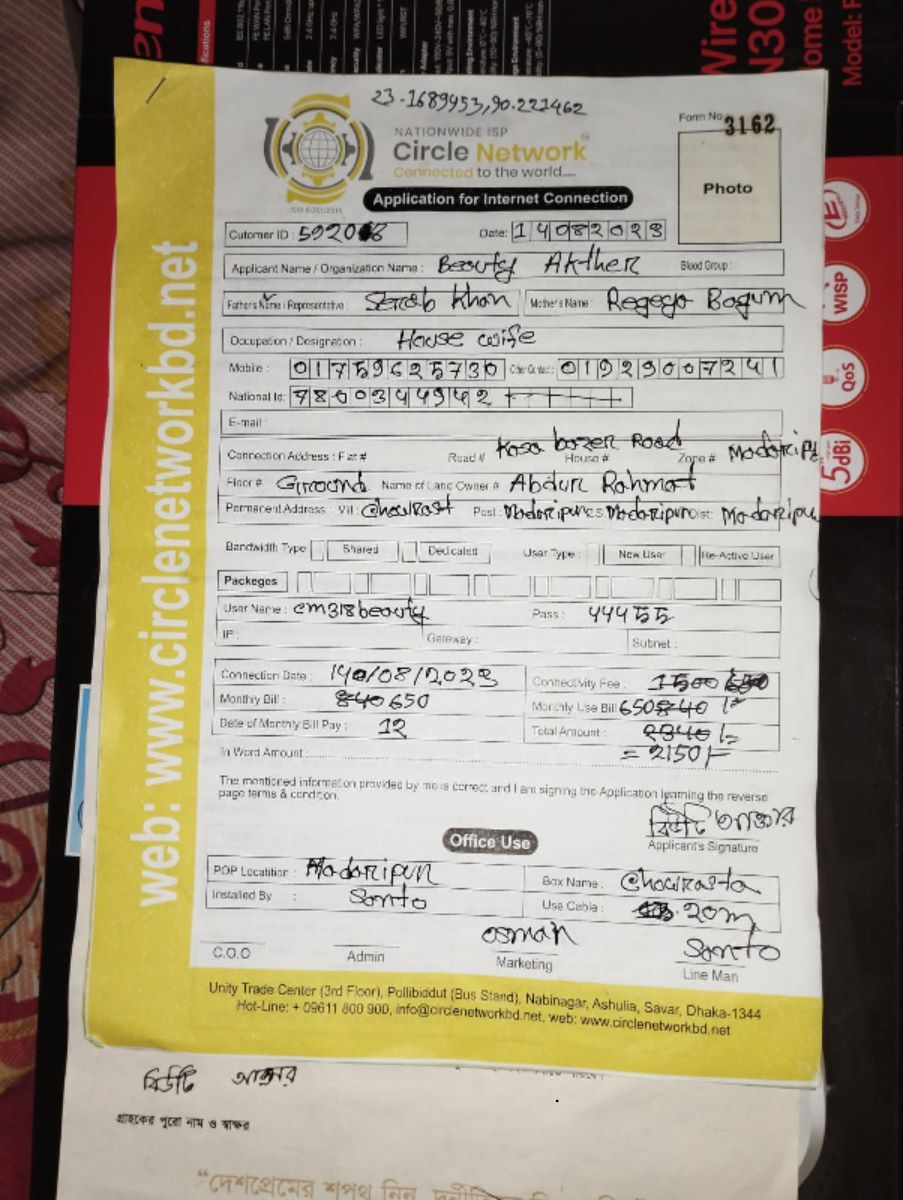 23-1689953,90.221462
Form No. 3162
NATIONWIDE ISP
Circle Network
Connected to the world....
ISO 9001:2015
Photo
Application for Internet Connection
Cutomer ID : 5920 8
Date: 14082023
Applicant Name / Organization Name : Beauty Akther Blood Group :
Father's Name / Representative : Serab Khan Mother's Name : Regego Bogum
Occupation / Designation : House wife
Mobile : 01759625730 Other Contact : 01929007241
National Id: 7800344942
E-mail :
Connection Address : Flat # Road # Kosa bazer Road House # Zone # Madaripur
Floor # Ground Name of Land Owner # Abdur Rahmat
Permanent Address : Vill : Chowrast Post : Madaripur P.S. Madaripur Dist: Madaripur
Bandwidth Type Shared Dedicated User Type : New User Re-Active User
Packeges
User Name : cm318beauty Pass : 44455
IP : Gateway : Subnet :
Connection Date : 14/08/2023 Connectivity Fee : 1500
Monthly Bill : 840 650 Monthly Use Bill 650 840 /=
Date of Monthly Bill Pay : 12 Total Amount : 2340 /=
In Word Amount : = 2150/-
The mentioned information provided by me is correct and I am signing this Application learning the reverse
page terms & condition.
বিউটি আক্তার
Applicant's Signature
Office Use
POP Locatition : Madaripur Box Name : Chowrasta
Installed By : Santo Use Cable : 20m
osman Santo
C.O.O Admin Marketing Line Man
Unity Trade Center (3rd Floor), Pollibiddut (Bus Stand), Nabinagar, Ashulia, Savar, Dhaka-1344
Hot-Line: + 09611 800 900, info@circlenetworkbd.net, web: www.circlenetworkbd.net
web: www.circlenetworkbd.net
বিউটি আক্তার
গ্রাহকের পুরো নাম ও স্বাক্ষর
“দেশপ্রেমের শপথ নিন,
WISP
QoS
5dBi